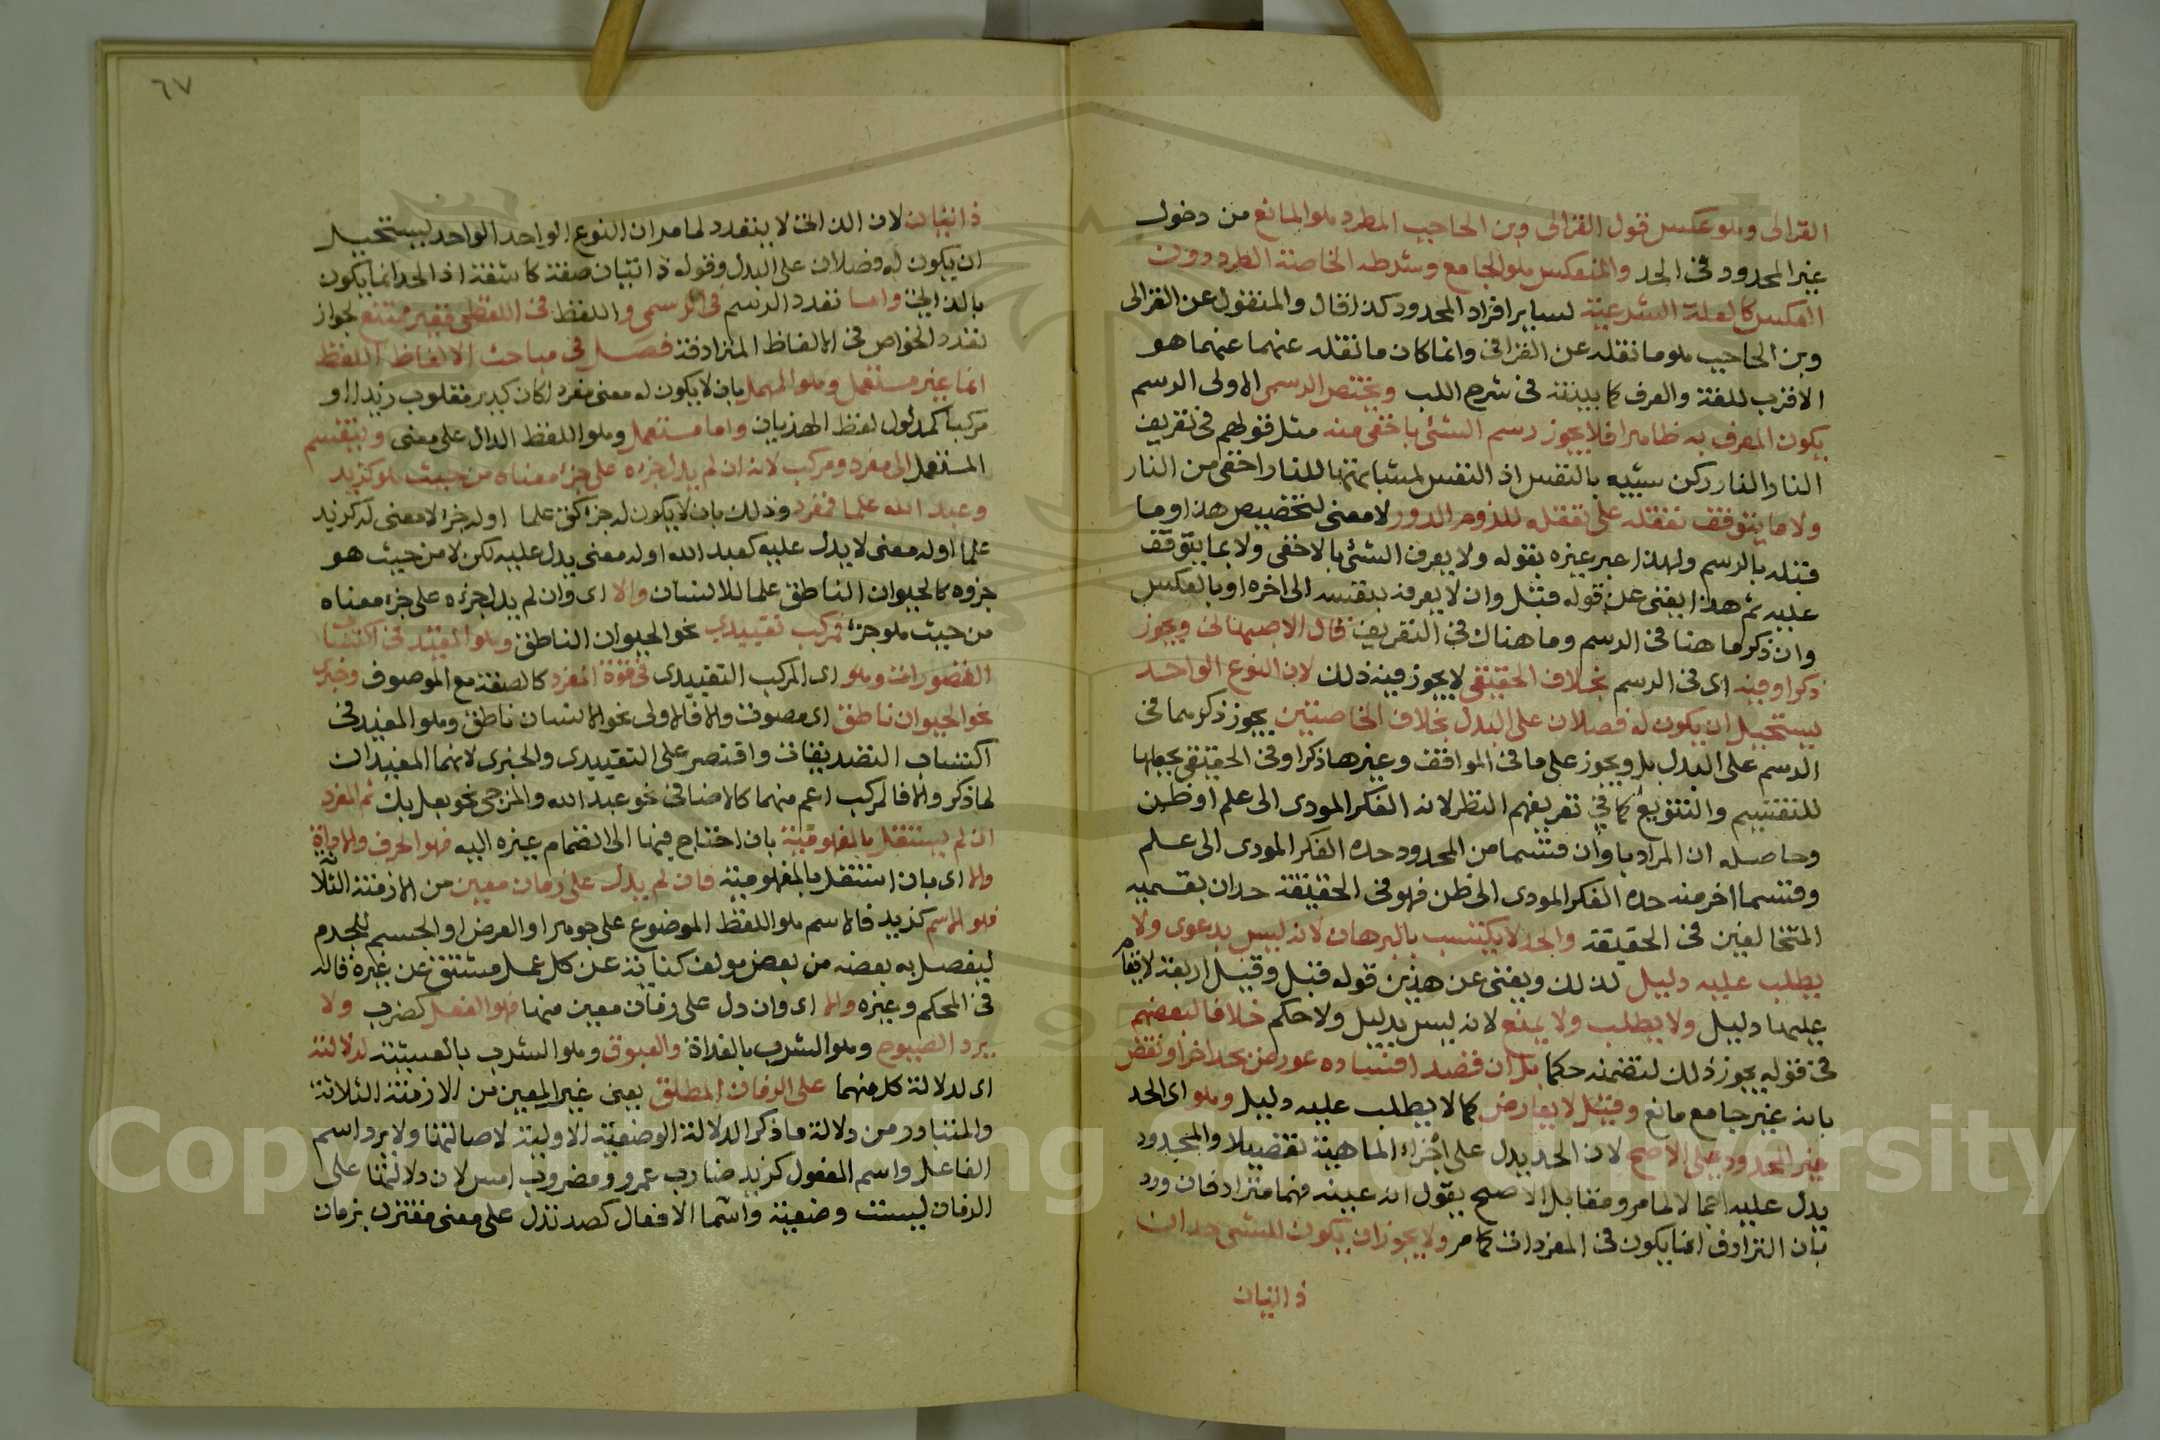 القرافى وهو عكس قول الغزالى وبن الحاجب المطرد هو المانع من دخول
غير المحدود فى الحد والمنعكس هو الجامع وشرطه الخاصة الطرد دون
العكس كالعلة الشرعية لساير افراد المحدود كذا قال والمنقول عن الغزالى
وبن الحاجب هو ما نقله عن القرافى وانما كان ما نقله عنهما عنهما هو
الاقرب للغة والعرف كما بينته فى شرح اللب ويختص الرسمى الاولى الرسم
بكون المعرف به ظاهرا فلا يجوز رسم الشئ باخفى منه مثل قولهم فى تعريف
النار النار ركن شبيه بالنفس اذ النفس لمشابهتها للنار اخفى من النار
ولا ما يتوقف تعقله على تعقله للزوم الدور لا معنى لتخصيص هذا وما
قبله بالرسم ولهذا عبر غيره بقوله ولا يعرف الشئ بالاخفى ولا بما يتوقف
عليه ثم هذا يغنى عن قوله قبل وان لا يعرف بنفسه الى اخره او بالعكس
وان ذكر ما هنا فى الرسم وما هناك فى التعريف قال الاصبهانى ويجوز
ذكر او فيه اى فى الرسم بخلاف الحقيقى لا يجوز فيه ذلك لان النوع الواحد
يستحيل ان يكون له فصلان على البدل بخلاف الخاصتين يجوز ذكرهما فى
الرسم على البدل بل ويجوز على ما فى المواقف وغيرها ذكر او فى الحقيقى بجعلها
للتقسيم والتنويع كما فى تعريفهم النظر لانه الفكر المودى الى علم او ظن
وحاصله ان المراد باو ان قسما من المحدود حده الفكر المودى الى علم
وقسما اخر منه حده الفكر المودى الى ظن فهو فى الحقيقة حدان بقسميه
المتخالفين فى الحقيقة والحد لا يكتسب بالبرهان لانه ليس بدعوى ولا
يطلب عليه دليل لذلك ويغنى عن هذين قوله قبل وقيل اربعة لا يقام
عليها دليل ولا يطلب ولا يمنع لانه ليس بدليل ولا حكم خلافا لبعضهم
فى قوله يجوز ذلك لتضمنه حكما بل ان قصد افساده عورض بحد اخر او نقض
بانه غير جامع مانع وقيل لا يعارض كما لا يطلب عليه دليل وهو اى الحد
غير المحدود على الاصح لان الحد يدل على اجزاء الماهية تفصيلا والمحدود
يدل عليه اجمالا لما مر ومقابل الاصح يقول انه عينه فهما مترادفان ورد
بان الترادف انما يكون فى المفردات كما مر ولا يجوز ان يكون للشى حدان
ذاتيان
٦٧
ذاتيان لان الذاتى لا يتعدد لما مر ان النوع الواحد الواحد يستحيل
ان يكون له فصلان على البدل وقوله ذاتيان صفة كاشفة اذ الحد انما يكون
بالذاتى واما تعدد الرسم فى الرسمى واللفظ فى اللفظى فغير ممتنع لجواز
تعدد الخواص فى الالفاظ المترادفة فصل فى مباحث الالفاظ اللفظ
اما غير مستعمل وهو المهمل بان لا يكون له معنى مفردا كان كديز مقلوب زيد او
مركبا كمدلول لفظ الهذيان واما مستعمل وهو اللفظ الدال على معنى وينقسم
المستعمل الى مفرد ومركب لانه ان لم يدل جزءه على جزء معناه من حيث هو كزيد
وعبد الله علما فمفرد وذلك بان لا يكون له جزء كق علما او له جزء لا معنى له كزيد
علما او له معنى لا يدل عليه كعبد الله او له معنى يدل عليه لكن لا من حيث هو
جزوه كالحيوان الناطق علما للانسان والا اى وان لم يدل جزءه على جزء معناه
من حيث هو جزء فمركب تقييدى نحو الحيوان الناطق وهو المفيد فى اكتساب
التصورات وهو اى المركب التقييدى فى قوة المفرد كالصفة مع الموصوف وخبرى
نحو الحيوان ناطق اى مصوت والا فالاولى نحو الانسان ناطق وهو المفيد فى
اكتساب التصديقات واقتصر على التقييدى والخبرى لانهما المفيدان
لما ذكر والا فالمركب اعم منهما كالاضافى نحو عبد الله والمزجى نحو بعلبك ثم المفرد
ان لم يستقل بالمفهومية بان احتاج فيها الى انضمام غيره اليه فهو الحرف والاداة
والا اى بان استقل بالمفهومية فان لم يدل على زمان معين من الازمنة الثلاثة
فهو الاسم كزيد فالاسم هو اللفظ الموضوع على جوهر او العرض او الجسم للجرم
ليفصل به بعضه من بعض مولف كناية عن كل عمل مشتق عن غيره قاله
فى المحكم وغيره والا اى وان دل على زمان معين منها فهو الفعل كضرب ولا
يرد الصبوح وهو الشرب بالغداة والغبوق وهو الشرب بالعشية لدلالته
اى لدلالة كل منهما على الزمان المطلق يعنى غير المعين من الازمنة الثلاثة
والمتبادر من دلالة ما ذكر الدلالة الوضعية الاولية لاصالتها ولا يرد اسم
الفاعل واسم المفعول كزيد ضارب عمرو ومضروب امس لان دلالتها على
الزمان ليست وضعية واسما الافعال كصه تدل على معنى مقترن بزمان
Copyright © King Saud University